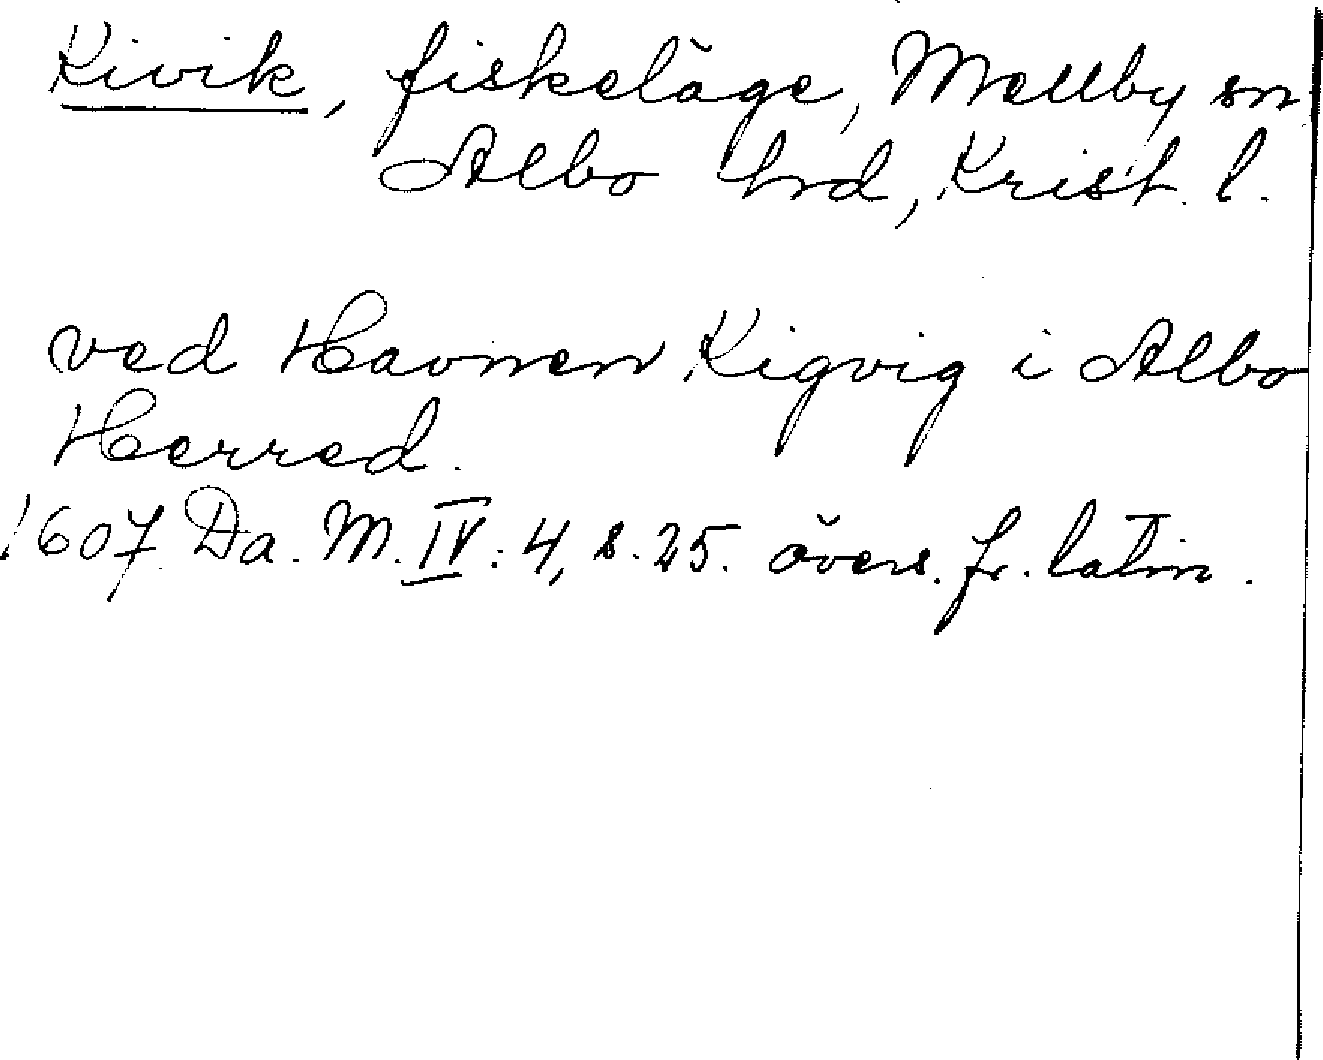 Kivik, fiskeläge, Mellby sn
Albo hrd, Krist. l.
ved Havnen Kigvig i Albo
Herred.
1607 Da. M. IV: 4, s. 25. övers. fr. latin.